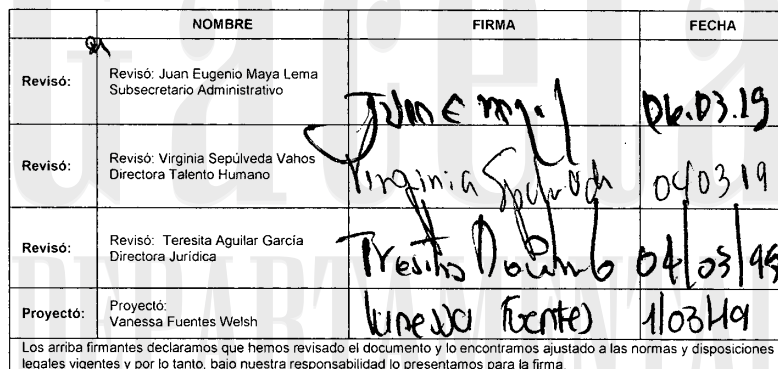 NOMBRE FIRMA FECHA
Revisó: Revisó: Juan Eugenio Maya Lema
Subsecretario Administrativo
06.03.19
Revisó: Revisó: Virginia Sepúlveda Vahos
Directora Talento Humano
Virginia Sepulveda 04 03 19
Revisó: Revisó: Teresita Aguilar García
Directora Jurídica
04/03/19
Proyectó: Proyectó:
Vanessa Fuentes Welsh
Vanessa Fuentes 1/03/19
Los arriba firmantes declaramos que hemos revisado el documento y lo encontramos ajustado a las normas y disposiciones
legales vigentes y por lo tanto, bajo nuestra responsabilidad lo presentamos para la firma.